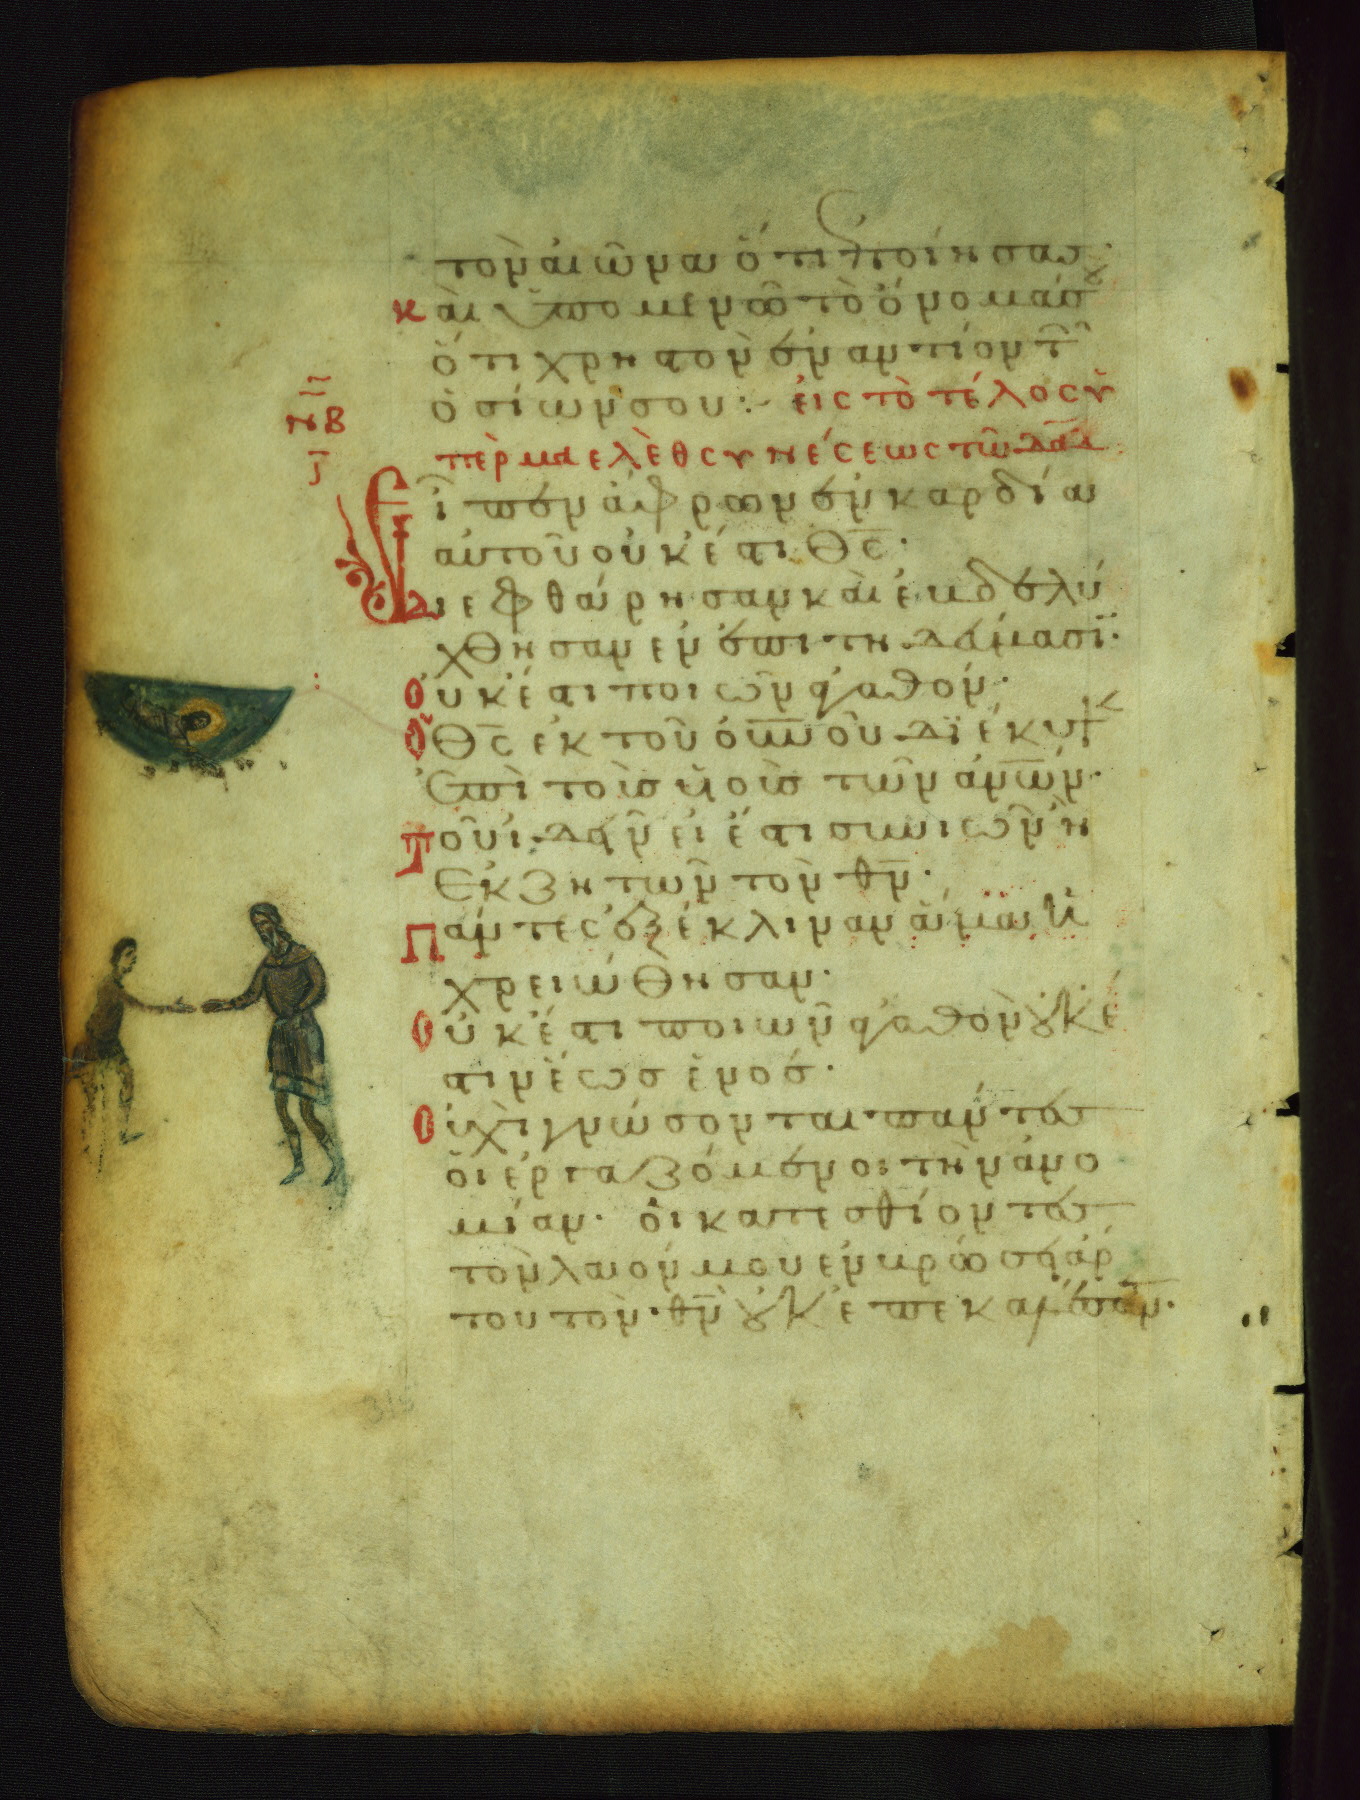 τον αἰῶναι ὅτι ἐποίησας·
καὶ ὑπομενῶ τὸ ὄνομά σου
ὅτι χρηστὸν ἐναντίον τῶν
ὁσίων σου:~ εἰς τὸ τέλος ὑ
πὲρ μαελὲθ συνέσεως τῶ δαδ
ν̅β̅
Εἶπεν ἄφρων ἐν καρδίαι
αὐτοῦ οὐκ ἔστι θ̅ς̅·
Διεφθάρησαν καὶ ἐβδελύ
χθησαν ἐν ἐπιτηδεύμασι·
Οὐκ ἔστι ποιῶν ἀγαθόν·
Ὁ θ̅ς̅ ἐκ τοῦ ο̅υ̅ν̅οῦ διέκυψ
Ἐπὶ τοὺς υἱοὺς τῶν ἀν̅ω̅ν·
Τοῦ ἰδεῖν εἰ ἔστι συνιῶν ἢ
Ἐκζητῶν τὸν θ̅ν̅·
Πάντες ἐξέκλιναν ἅμα ἠ
χρειώθησαν·
Οὐκ ἔστι ποιῶν ἀγαθὸν οὐκ ἔ
στιν ἕως ἑνός·
Οὐχὶ γνώσονται πάντες
οἱ ἐργαζόμενοι τὴν ἀνο
μίαν· οἱ κατεσθίοντες
τὸν λαόν μου ἐν βρώσει ἄρ
του τὸν θ̅ν̅ οὐκ ἐπεκαλέσαν·